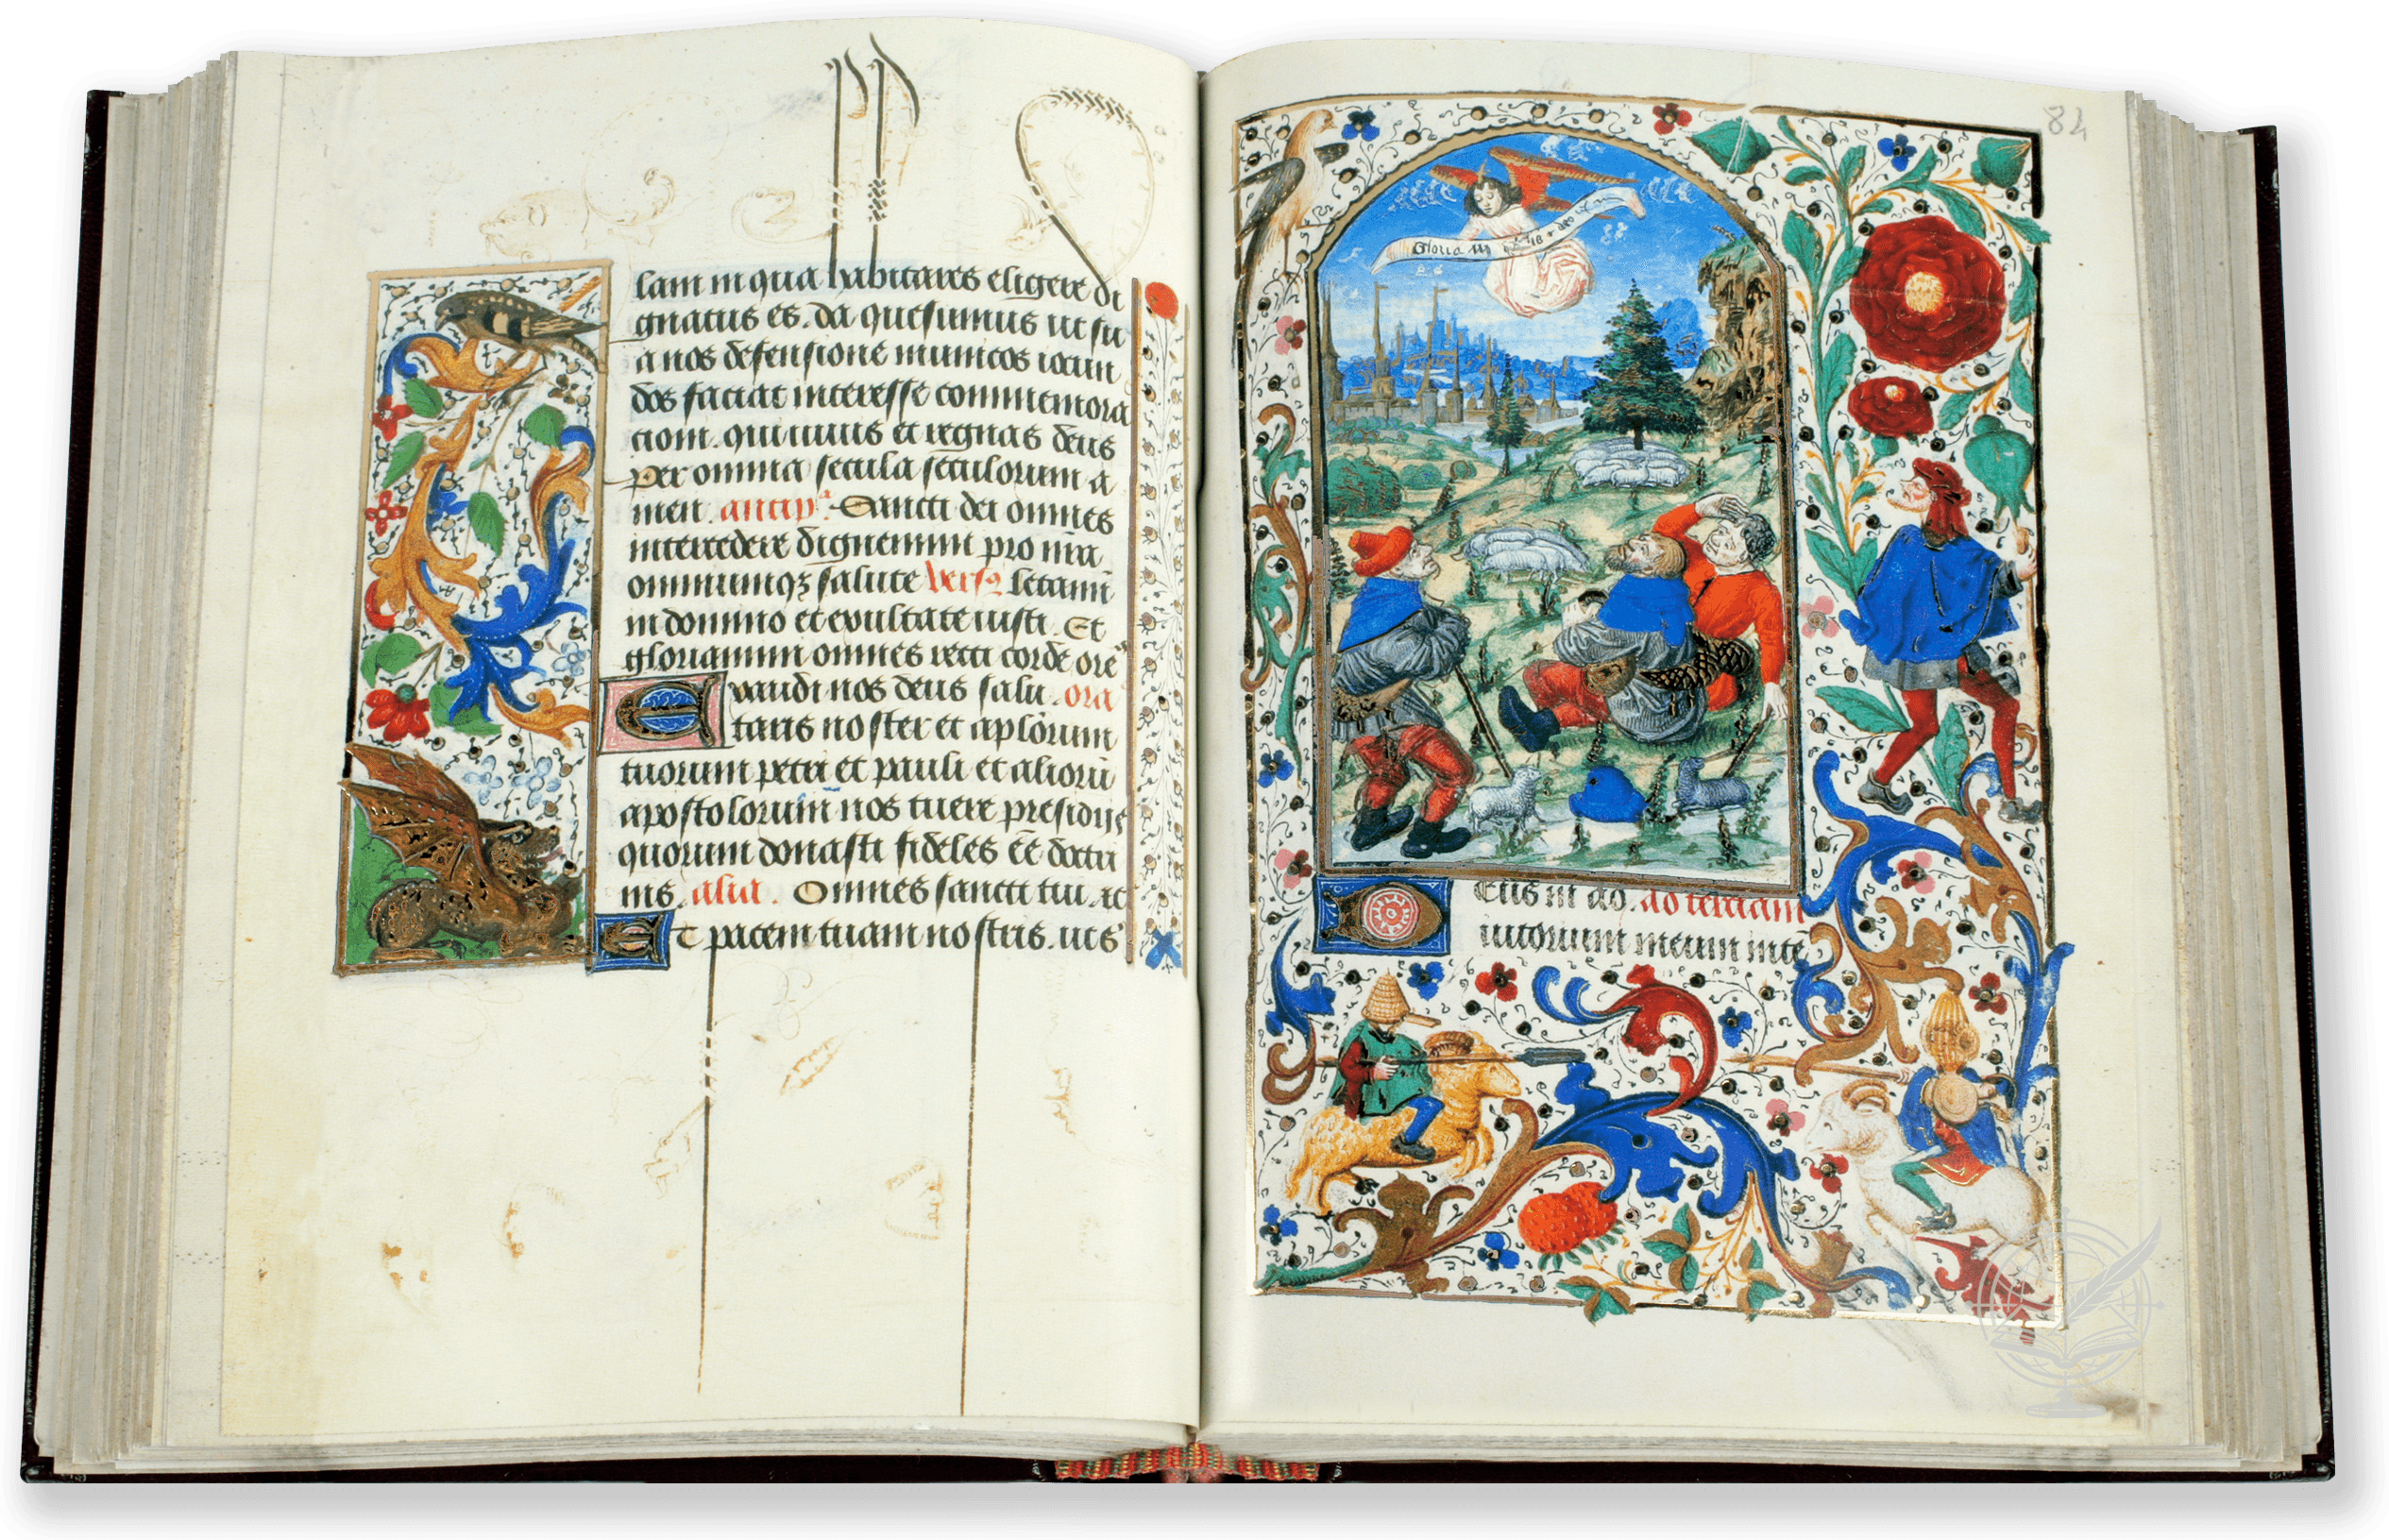 lam in qua habitares eligere di
gnatus es. da quesumus ut su
a nos defensione munitos iocun
dos faciat interesse commemora
tioni. qui uiuis et regnas deus
Per omnia secula seculorum a
men. antip̄ª. Sancti dei omnes
intercedere dignemini pro nr̄a
omniumqꝫ salute versꝰ letami
ni domino et exultate iusti. Et
gloriamini omnes recti corde orē
Exaudi nos deus salu. ora
taris noster et aplōrum
tuorum petri et pauli et alioru̅
apostolorum nos tuere presidijs
quorum donasti fideles eē doctri
nis. alia. Omnes sancti tui. ac
Et pacem tuam nostris. utṡ
84
Gloria in
Deus in ad. ad terciam
iutorium meum inte̅